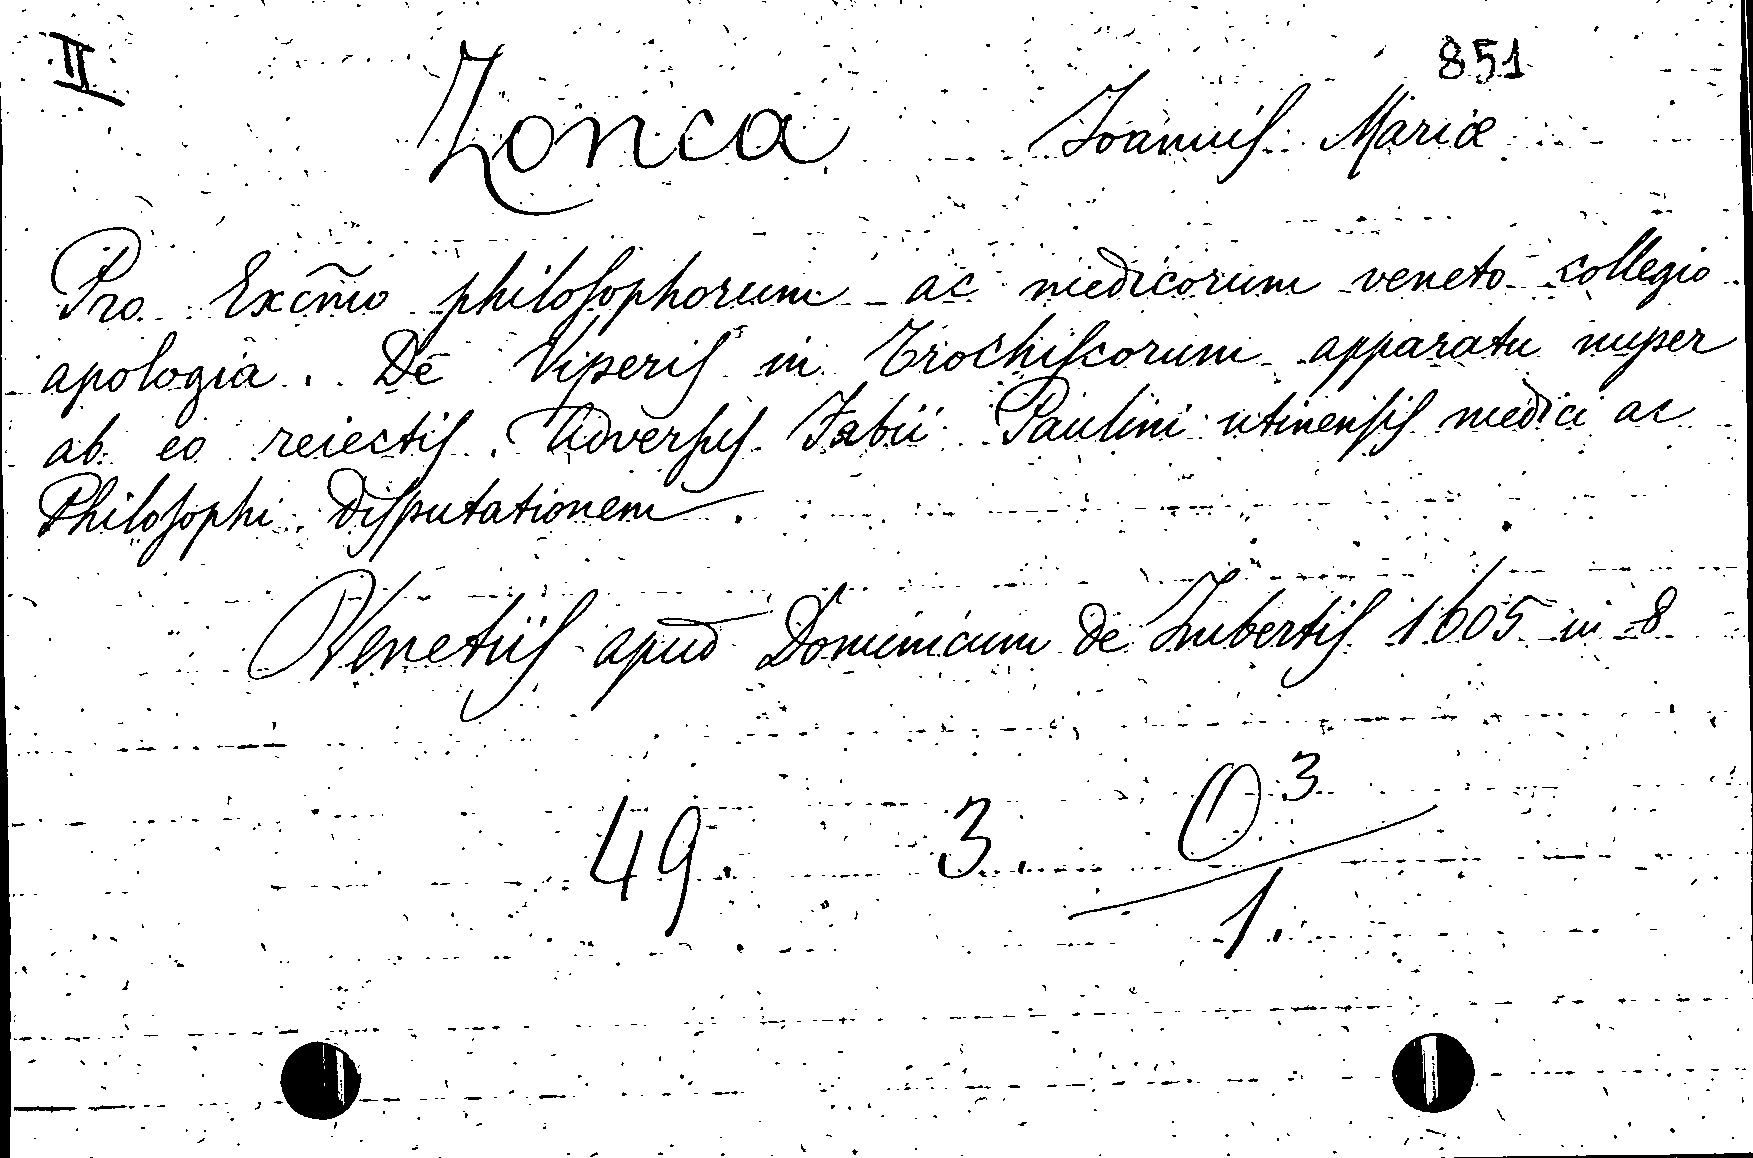 II
851
Zonca Ioannis Mariæ
Pro Excm̃o philosophorum ac medicorum veneto collegio
apologia. De Viperis in Trochiscorum apparatu nuper
ab eo reiectis. Adversus Fabii Paulini utinensis medici ac
Philosophi Disputationem.
Venetiis apud Dominicum de Imbertis 1605 in 8
49. 3. O 3
1.